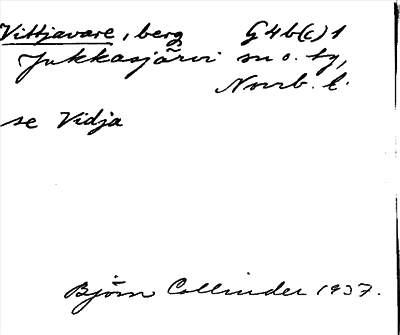 Vittjavare, berg G4b(c)1
Jukkasjärvi sn o. tg,
Norrb. l.
se Vidja
Björn Collinder 1937.